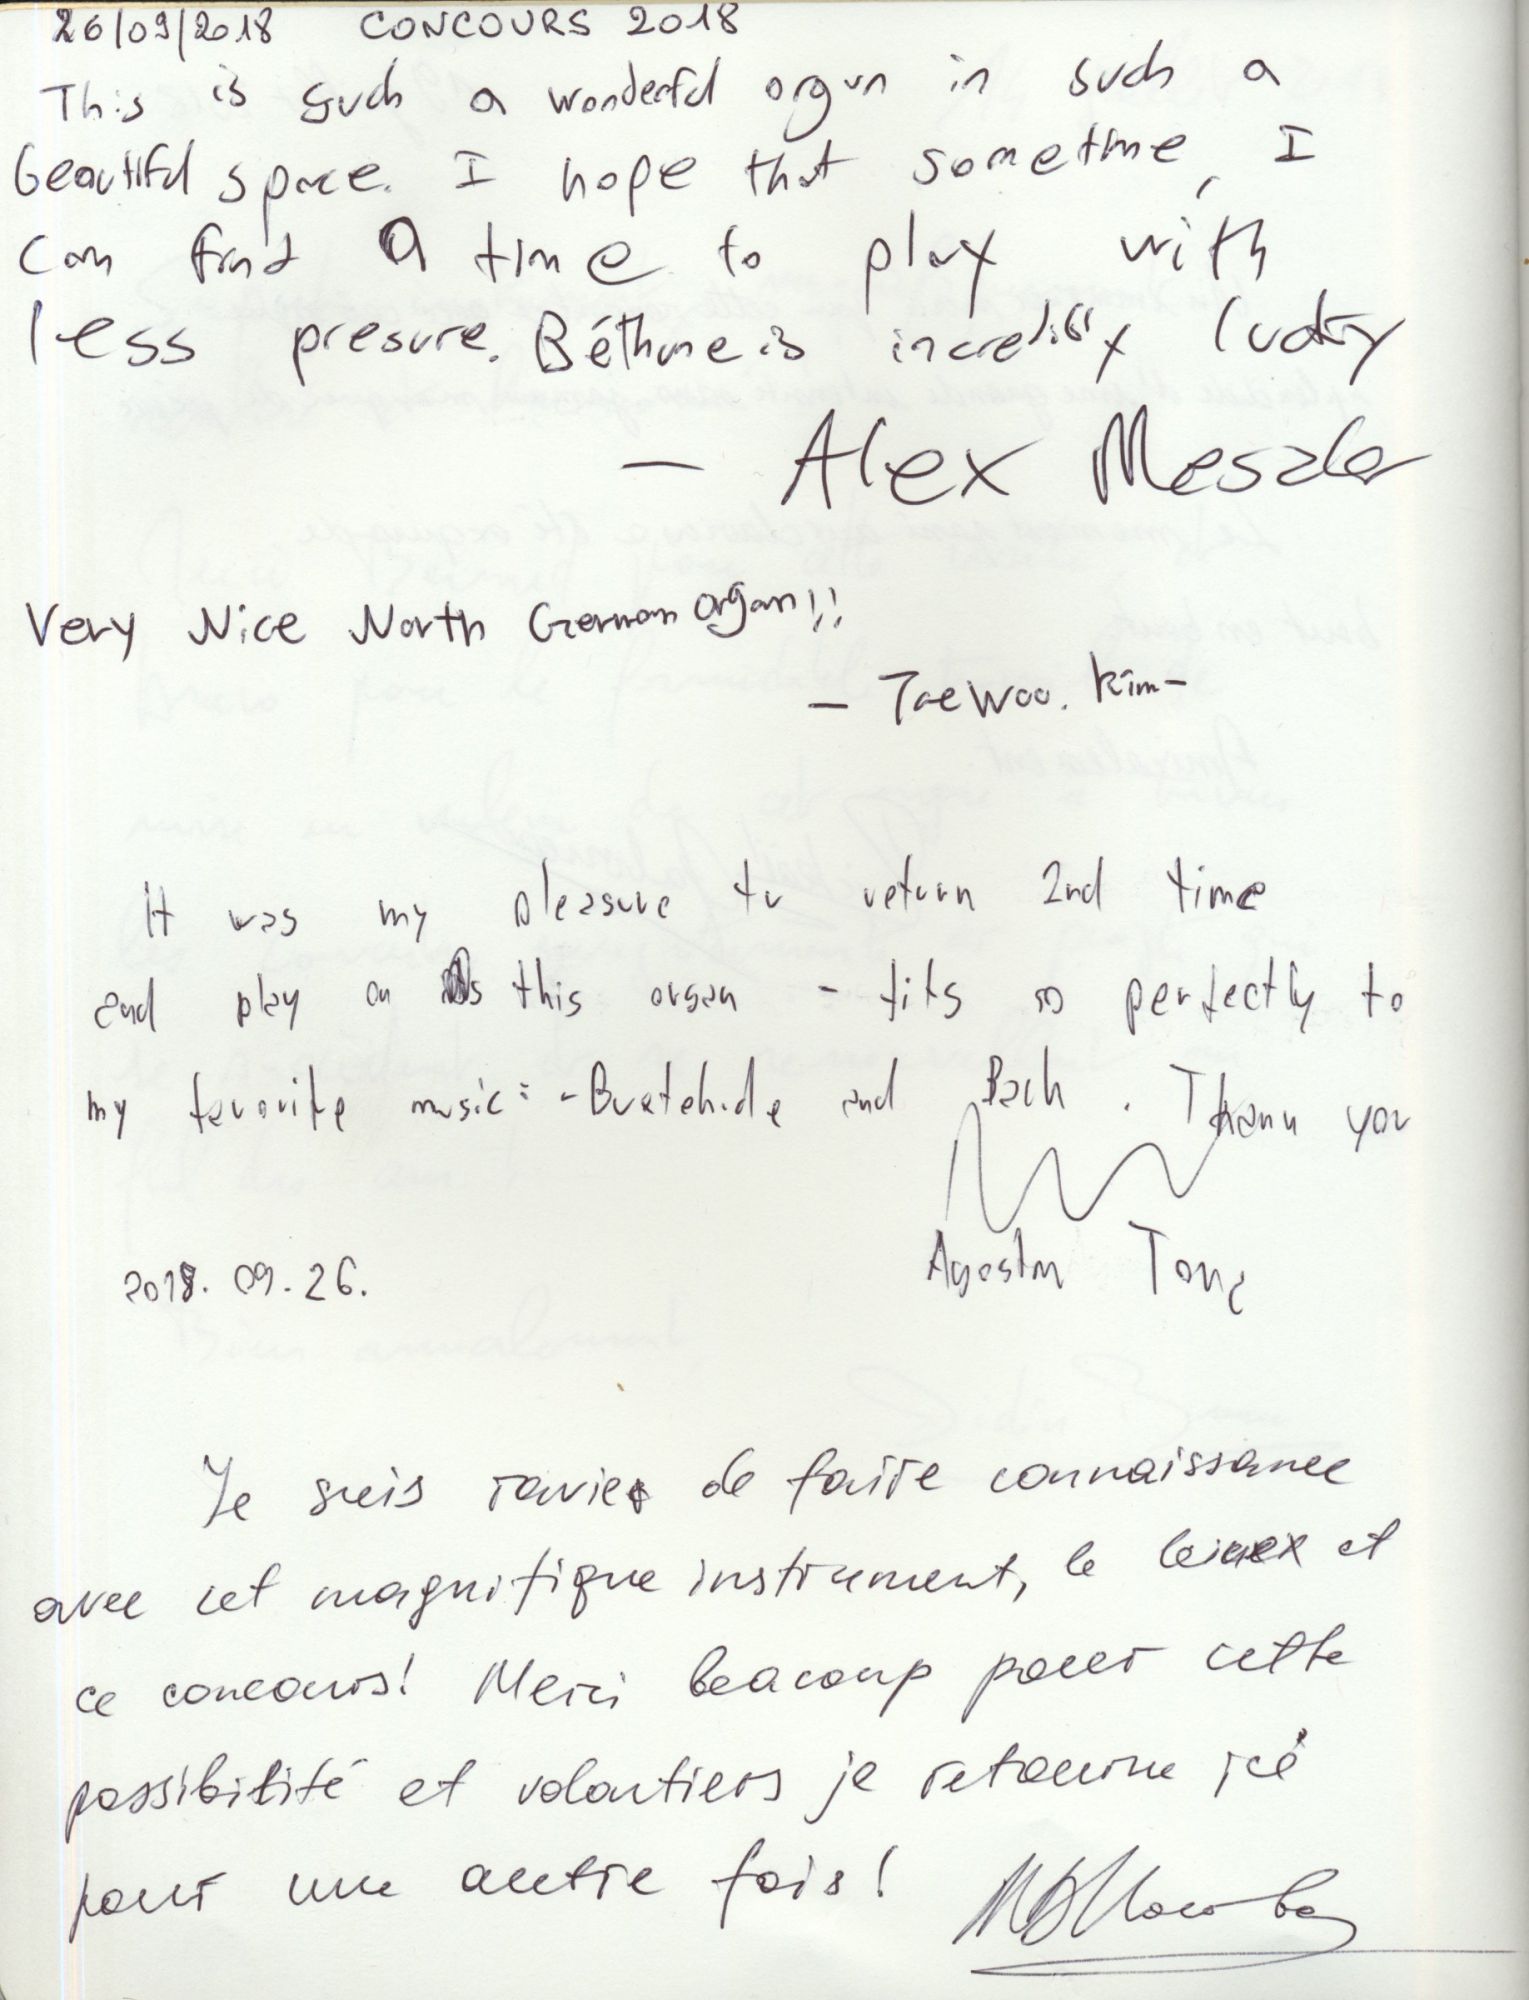 26/09/2018 CONCOURS 2018
This is such a wonderful organ in such a
beautiful space. I hope that sometime, I
can find a time to play with
less presure. Béthune is incredibly lucky
— Alex Meszler
Very Nice North German organ!!
— TaeWoo. Kim —
It was my pleasure to return 2nd time
and play on this organ - fits so perfectly to
my favorite music: - Buxtehude and Bach. Thank you
Agoston Tóka
2018. 09. 26.
Je suis ravie de faire connaissance
avec cet magnifique instrument, le lieux et
ce concours! Merci beacoup pour cette
possibilité et volontiers je retourne ici
pour une autre fois!